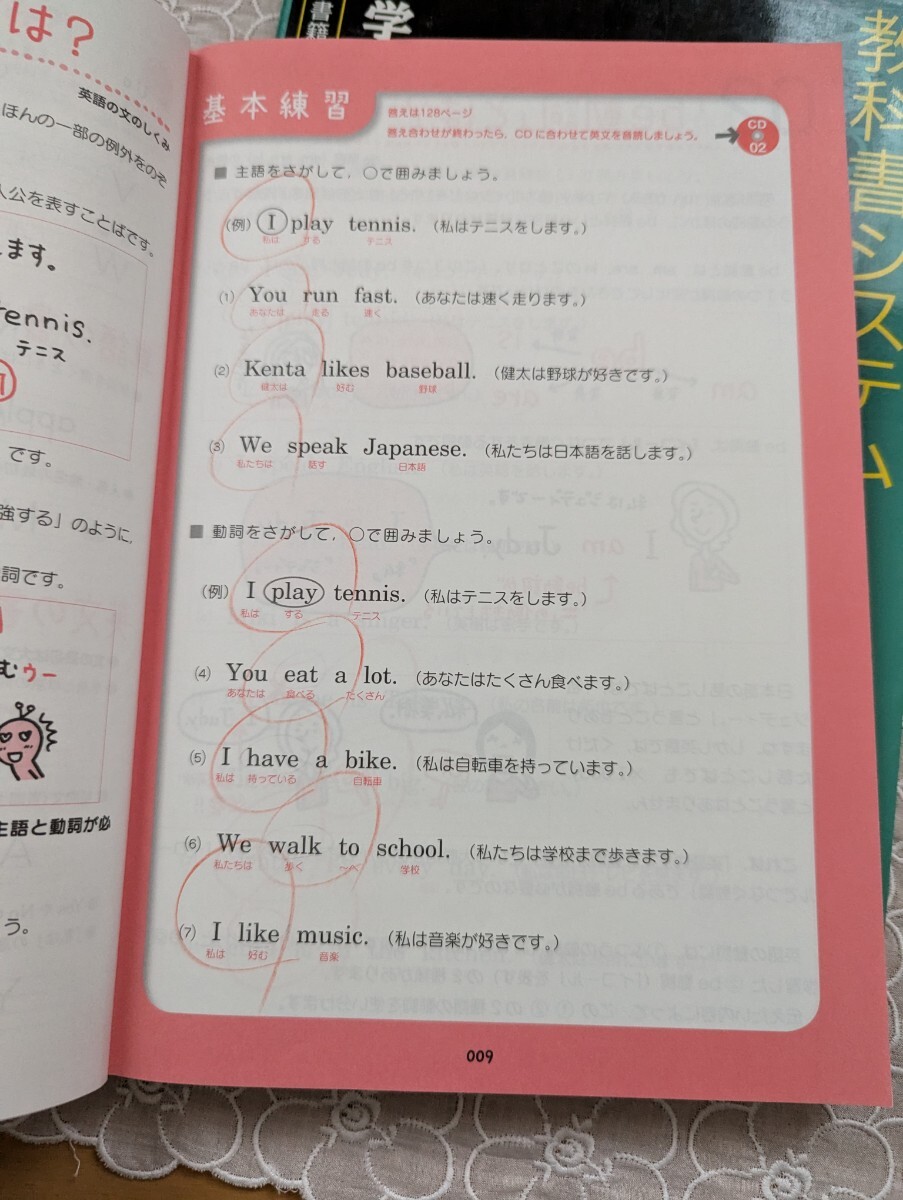 は?
英語の文のしくみ
ほんの一部の例外をのぞ
人公を表すことばです。
ます。
tennis.
テニス
です。
強する」のように,
詞です。
むぅー
主語と動詞が必
う。
書籍
学
教科書システム
基本練習
答えは128ページ
答え合わせが終わったら, CDに合わせて英文を音読しましょう。
CD
02
■ 主語をさがして, ○で囲みましょう。
(例) I play tennis. (私はテニスをします。)
私は する テニス
(1) You run fast. (あなたは速く走ります。)
あなたは 走る 速く
(2) Kenta likes baseball. (健太は野球が好きです。)
健太は 好む 野球
(3) We speak Japanese. (私たちは日本語を話します。)
私たちは 話す 日本語
■ 動詞をさがして, ○で囲みましょう。
(例) I play tennis. (私はテニスをします。)
私は する テニス
(4) You eat a lot. (あなたはたくさん食べます。)
あなたは 食べる たくさん
(5) I have a bike. (私は自転車を持っています。)
私は 持っている 自転車
(6) We walk to school. (私たちは学校まで歩きます。)
私たちは 歩く ～へ 学校
(7) I like music. (私は音楽が好きです。)
私は 好む 音楽
009